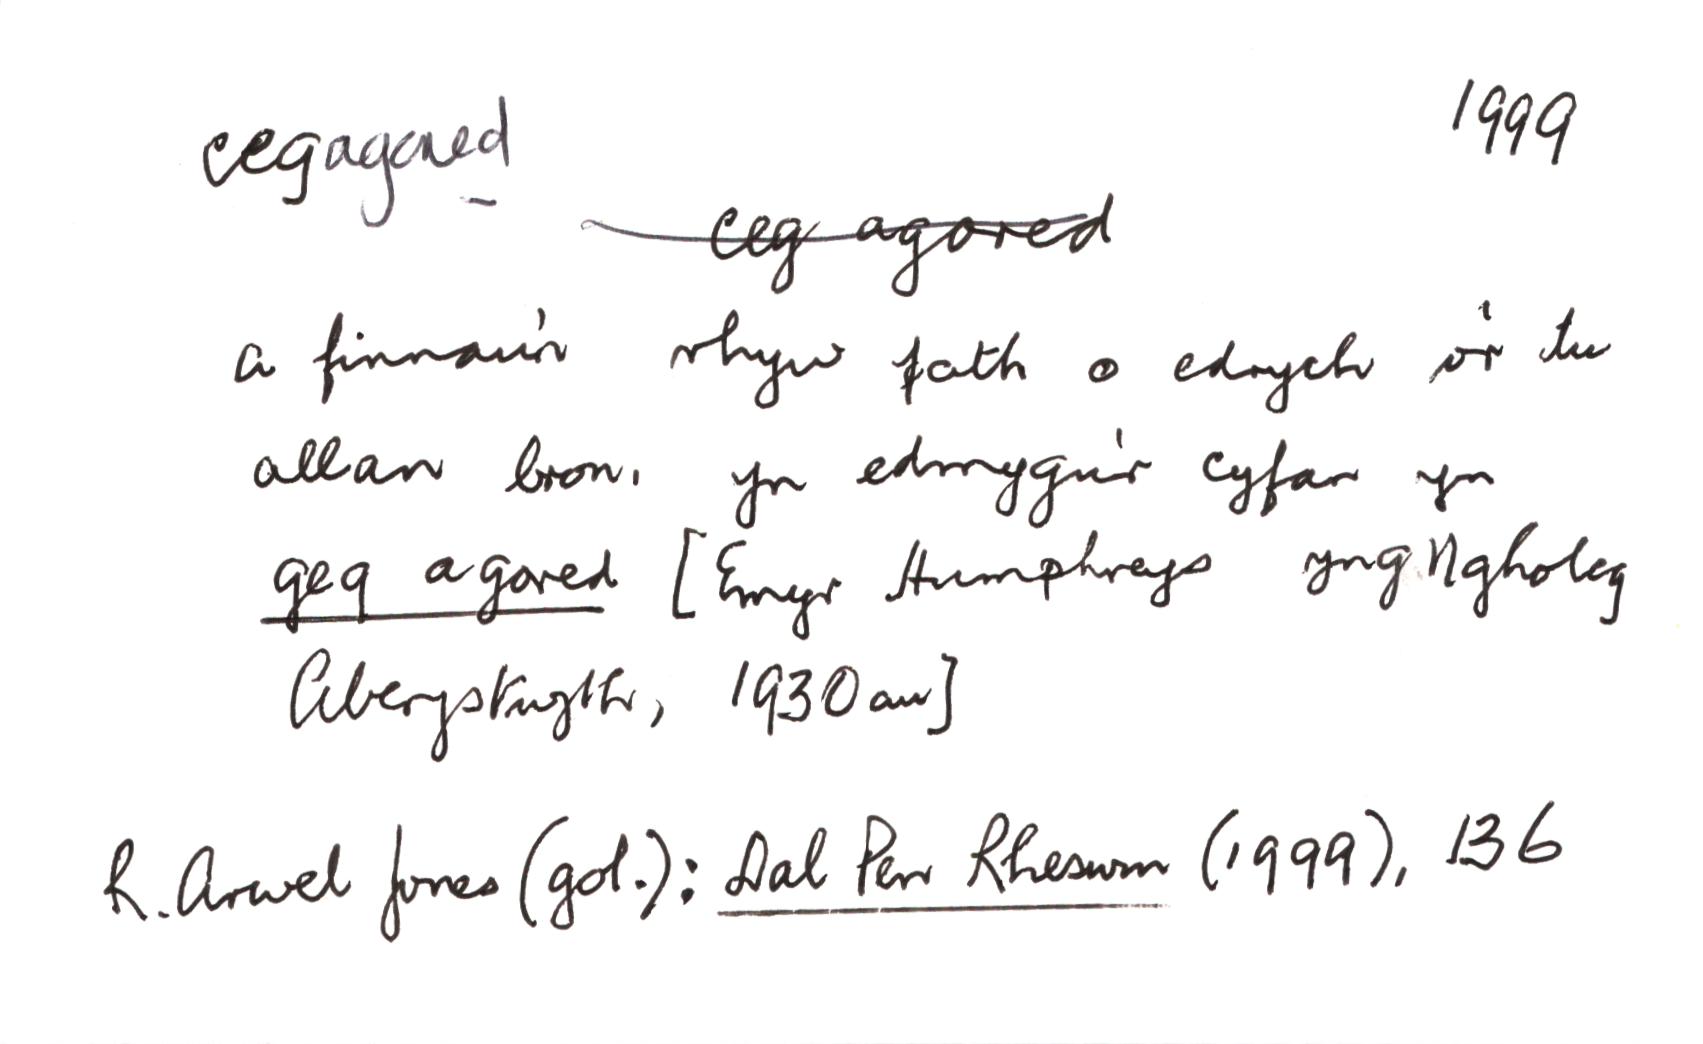 cegagored
1999
ceg agored
a finnau'n rhyw fath o edrych o'r tu
allan bron, yn edmygu'r cyfan yn
geg agored [Emyr Humphreys yng Ngholeg
Aberystwyth, 1930au]
R. Arwel Jones (gol.): Dal Pen Rheswm (1999), 136